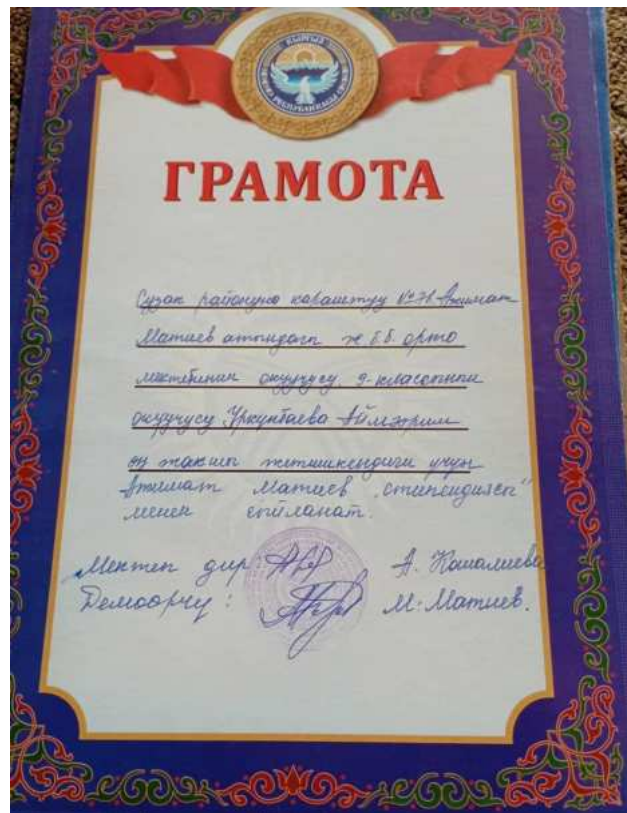 КЫРГЫЗ РЕСПУБЛИКАСЫ
ГРАМОТА
Сузак районуна караштуу №71 Ажимат
Матиев атындагы ж.б.б. орто
мектебинин окуучусу 9-классынын
окуучусу Уркунбаева Айжарим
эң жакшы жетишкендиги үчүн
Ажимат Матиев "стипендиясы"
менен сыйланат.
Мектеп дир А. Кошалиева
Демоорчу: М. Матиев.